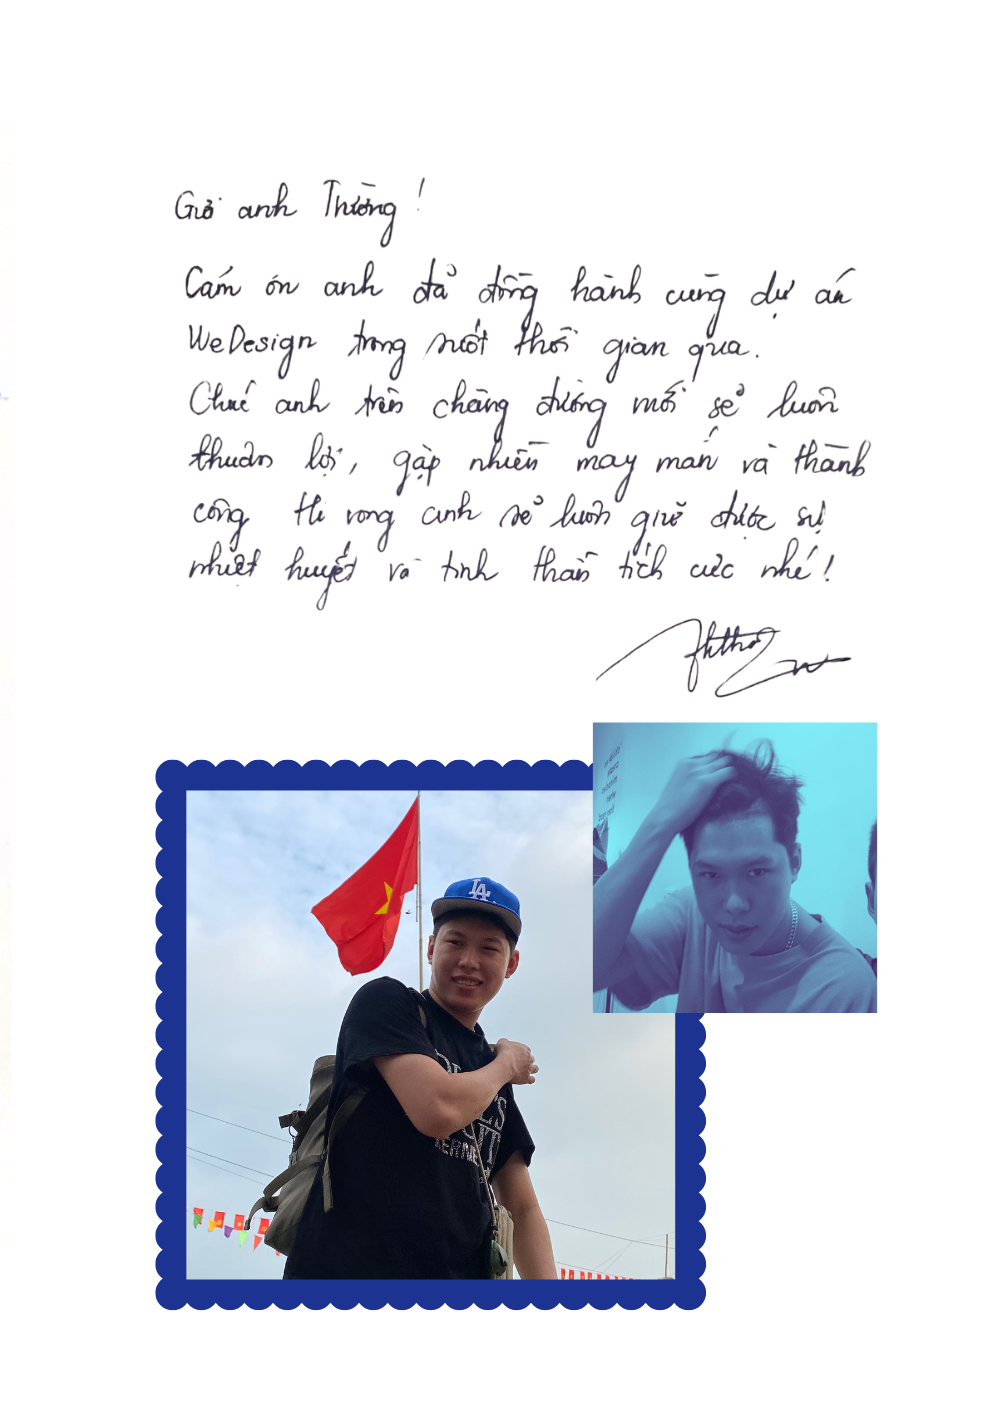 Gửi anh Thường!
Cám ơn anh đã đồng hành cùng dự án
WeDesign trong suốt thời gian qua.
Chúc anh trên chặng đường mới sẽ luôn
thuận lợi, gặp nhiều may mắn và thành
công Hi vọng anh sẽ luôn giữ được sự
nhiệt huyết và tinh thần tích cực nhé!
LA